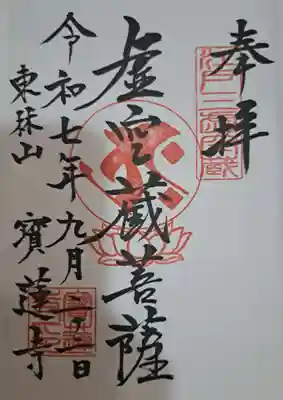 奉拝
虚空蔵菩薩
令和七年九月二十二日
東珠山 寶蓮寺